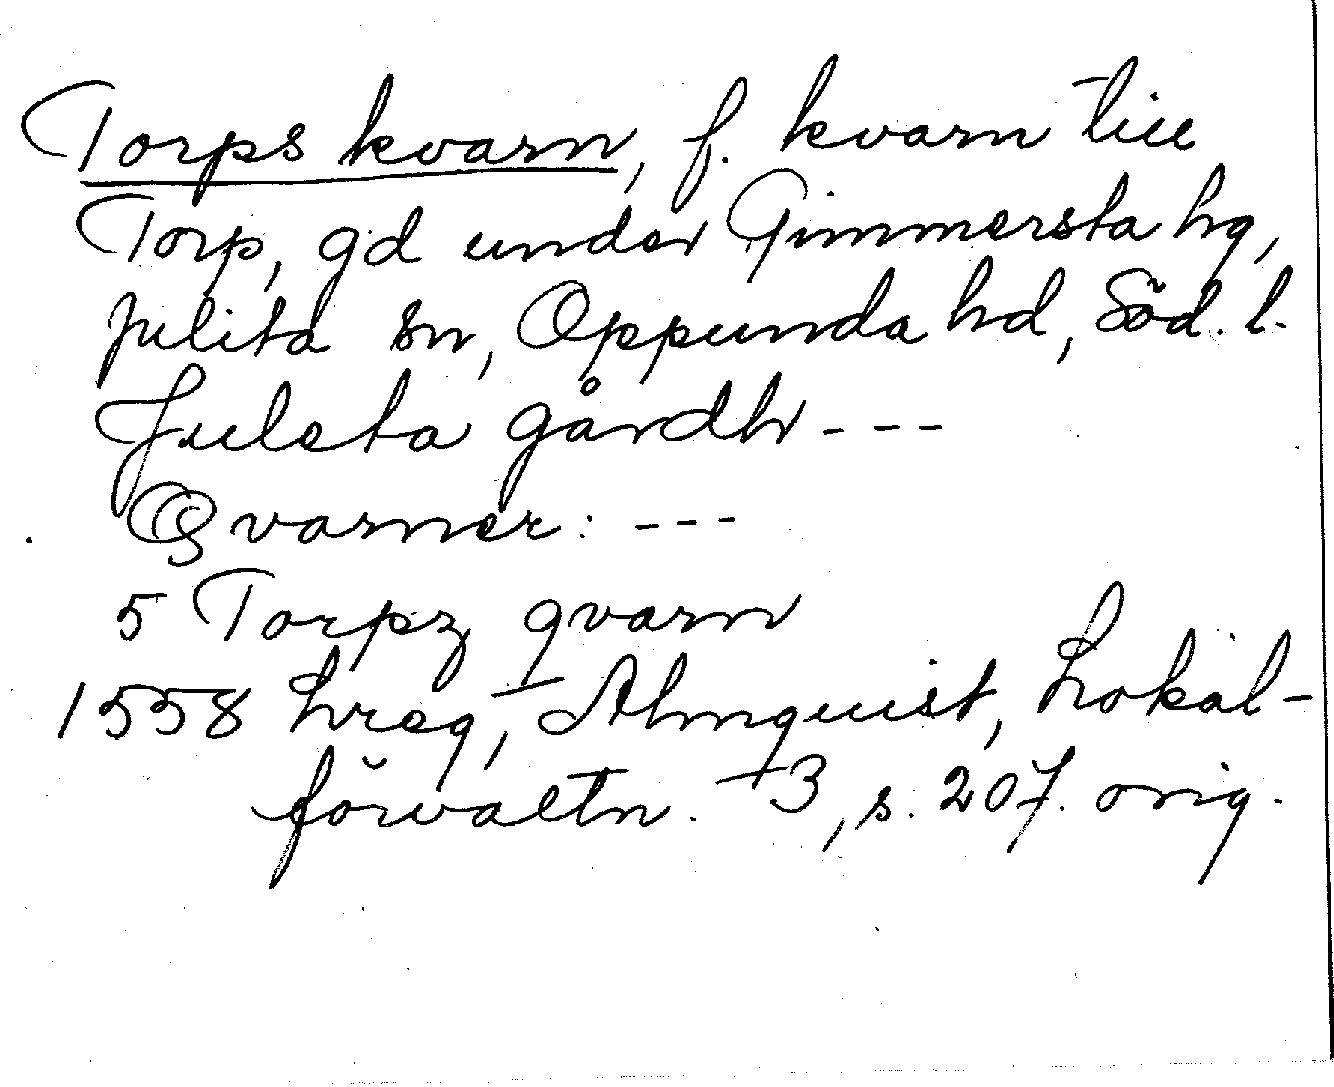 Torps kvarn, f. kvarn till
Torp, gd under Gimmersta hg,
Julita sn, Oppunda hd, Söd. l.
Juleta gårdh ---
Qvarner: ---
5 Torpz qvarn
1558 hreg, Almquist, Lokal-
förvaltn. 3, s. 207. orig.